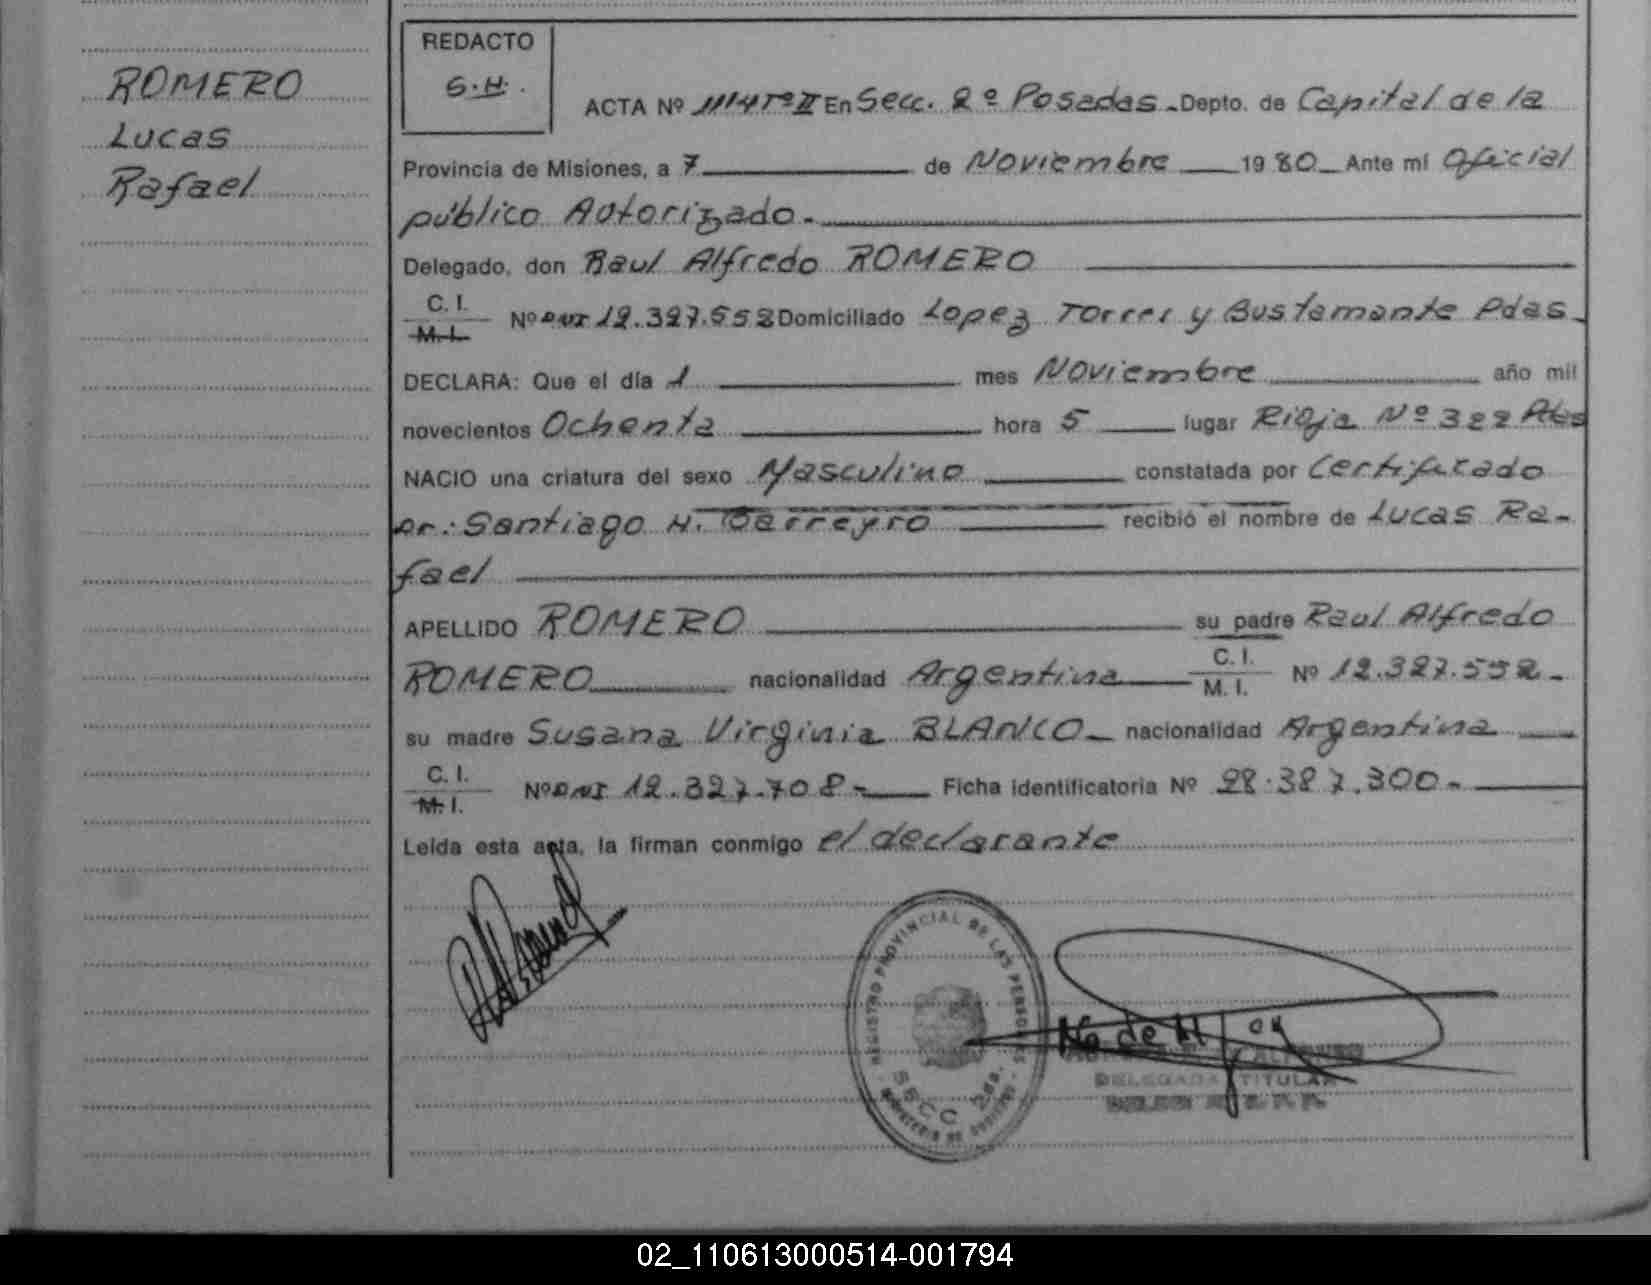 ROMERO
Lucas
Rafael
REDACTO
G.H.
ACTA Nº 1114 Tº II En Secc. 2º Posadas - Depto. de Capital de la
Provincia de Misiones, a 7 de Noviembre 1980 Ante mí Oficial
público Autorizado.
Delegado, don Raul Alfredo ROMERO
C. I.
M. I.
Nº DNI 12.327.552 Domiciliado Lopez Torres y Bustamante Pdas.
DECLARA: Que el día 1 mes Noviembre año mil
novecientos Ochenta hora 5 lugar Rioja Nº 322
NACIO una criatura del sexo Masculino constatada por Certificado
Dr.: Santiago H. Barreyro recibió el nombre de Lucas Ra-
fael
APELLIDO ROMERO su padre Raul Alfredo
ROMERO nacionalidad Argentina C. I.
M. I. Nº 12.327.552.-
su madre Susana Virginia BLANCO - nacionalidad Argentina
C. I.
M. I.
Nº DNI 12.327.708.- Ficha identificatoria Nº 28.387.300.-
Leída esta acta, la firman conmigo el declarante
REGISTRO PROVINCIAL DE LAS PERSONAS
SECC 2da.
DELEGADA TITULAR
02_110613000514-001794